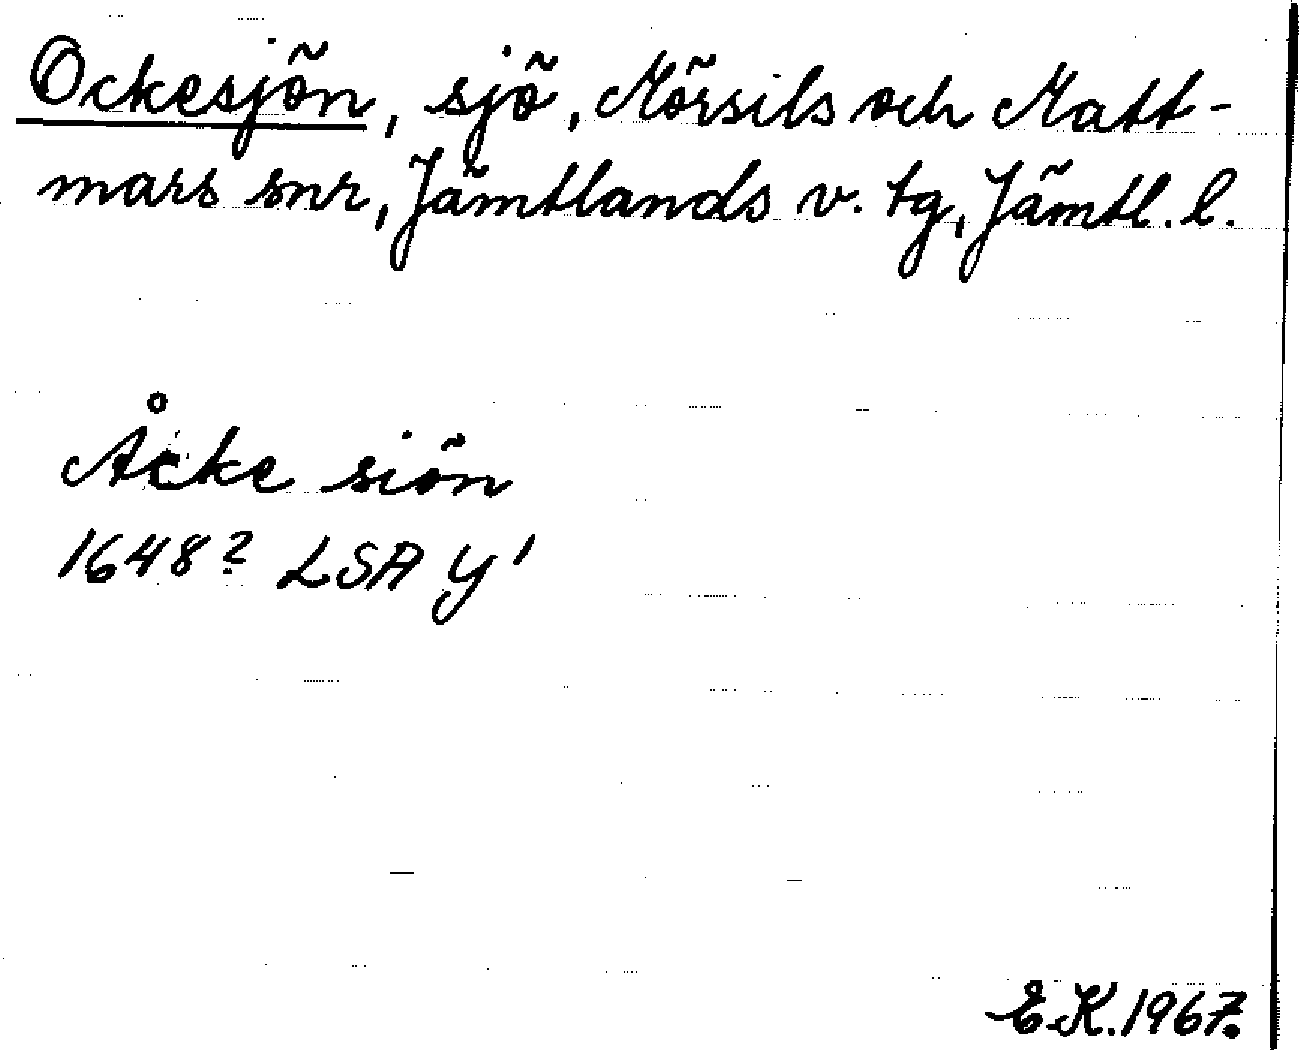 Ockesjön, sjö, Mörsils och Matt-
mars snr, Jämtlands v. tg, Jämtl. l.
Åcke siön
1648? LSA Y¹
E.K. 1967.